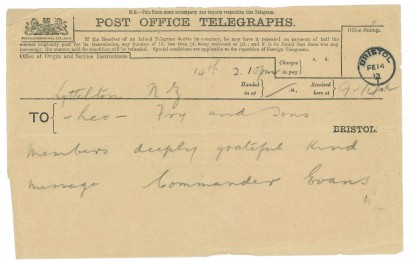 N.B.—This Form must accompany any Inquiry respecting this Telegram.
POST OFFICE TELEGRAPHS.
If the Receiver of an Inland Telegram doubts its accuracy, he may have it repeated on payment of half the
amount originally paid for its transmission, any fraction of 1d. less than ½d. being reckoned as ½d.; and if it be found that there was any
inaccuracy, the amount paid for repetition will be refunded. Special conditions are applicable to the repetition of Foreign Telegrams.
Office Stamp.
Office of Origin and Service Instructions.
Charges
to pay
s. d.
BRISTOL
FE 14
13
14th 2.15pm
Handed
in at
Received
here at
Lyttelton N Z
TO
Fry and Sons
BRISTOL.
Members deeply grateful kind
message Commander Evans